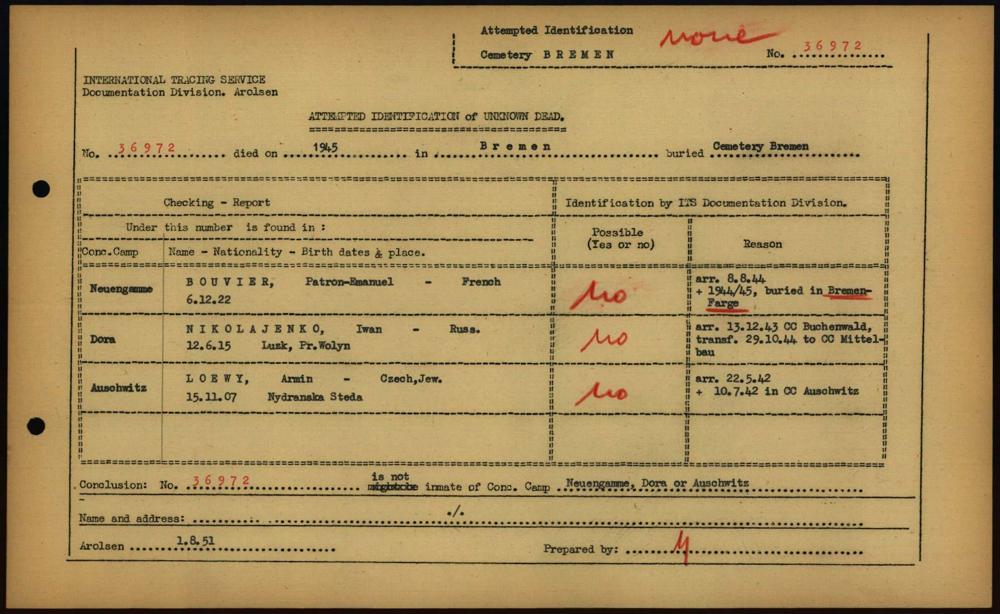 Attempted Identification none
Cemetery B R E M E N No. 36972
INTERNATIONAL TRACING SERVICE
Documentation Division. Arolsen
ATTEMPTED IDENTIFICATION of UNKNOWN DEAD.
No. 36972 died on 1945 in B r e m e n buried Cemetery Bremen
Checking - Report Identification by ITS Documentation Division.
Under this number is found in :
Possible
(Yes or no) Reason
Conc.Camp Name - Nationality - Birth dates & place.
Neuengamme B O U V I E R, Patron-Emanuel - French
6.12.22
No
arr. 8.8.44
+ 1944/45, buried in Bremen-
Farge
Dora N I K O L A J E N K O, Iwan - Russ.
12.6.15 Luzk, Pr.Wolyn
No
arr. 13.12.43 CC Buchenwald,
transf. 29.10.44 to CC Mittel-
bau
Auschwitz L O E W Y, Armin - Czech,Jew.
15.11.07 Nydranska Steda
No
arr. 22.5.42
+ 10.7.42 in CC Auschwitz
is not
Conclusion: No. 36972 inmate of Conc. Camp Neuengamme, Dora or Auschwitz
Name and address: ./.
Arolsen 1.8.51 Prepared by: